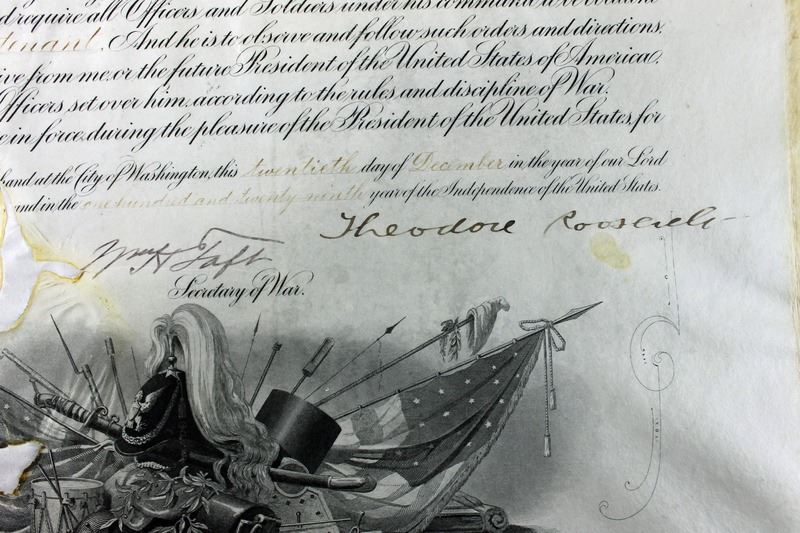 d require all Officers and Soldiers under his command
tenant. And he is to observe and follow such orders and directions,
ive from me, or the future President of the United States of America,
Officers set over him, according to the rules and discipline of War.
e in force, during the pleasure of the President of the United States, for
hand at the City of Washington, this twentieth day of December in the year of our Lord
and in the one hundred and twenty-ninth year of the Independence of the United States.
Theodore Roosevelt
Wm H Taft
Secretary of War.